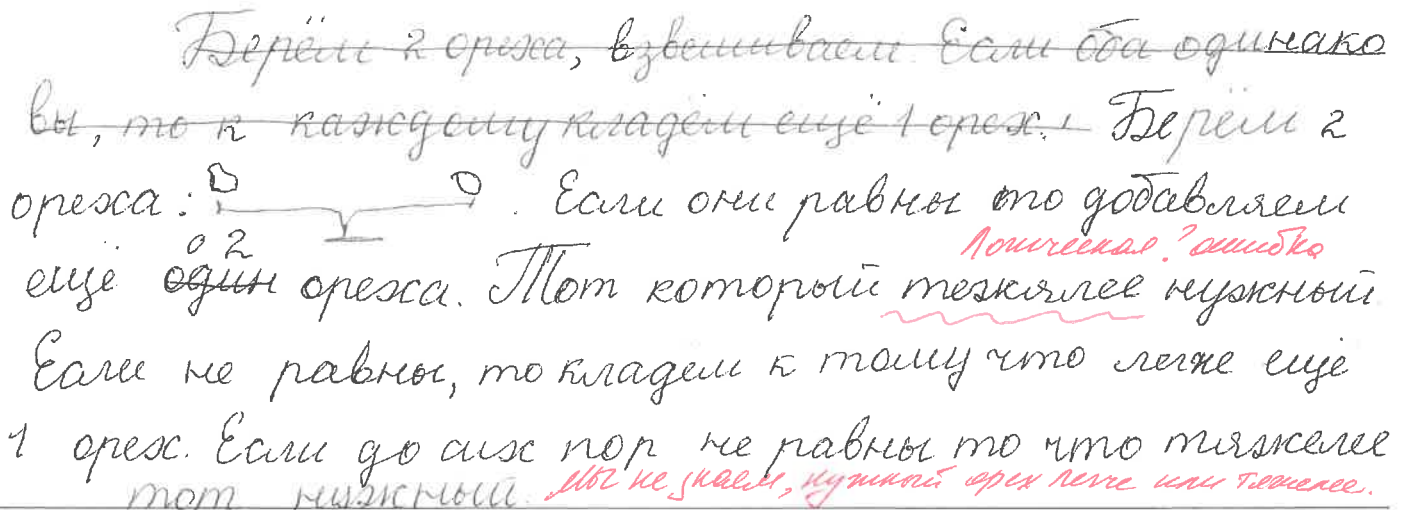 Берём 2 ореха, взвешиваем Если оба одинако
вы, то к каждому кладём ещё 1 орех. Берём 2
ореха: . Если они равны то добавляем
о 2
Логическая? ошибка
ещё один ореха. Тот который тежялее нужный
Если не равны, то кладем к тому что легче ещё
1 орех. Если до сих пор не равны то что тяжелее
тот нужный. Мы не знаем, нужный орех легче или тяжелее.